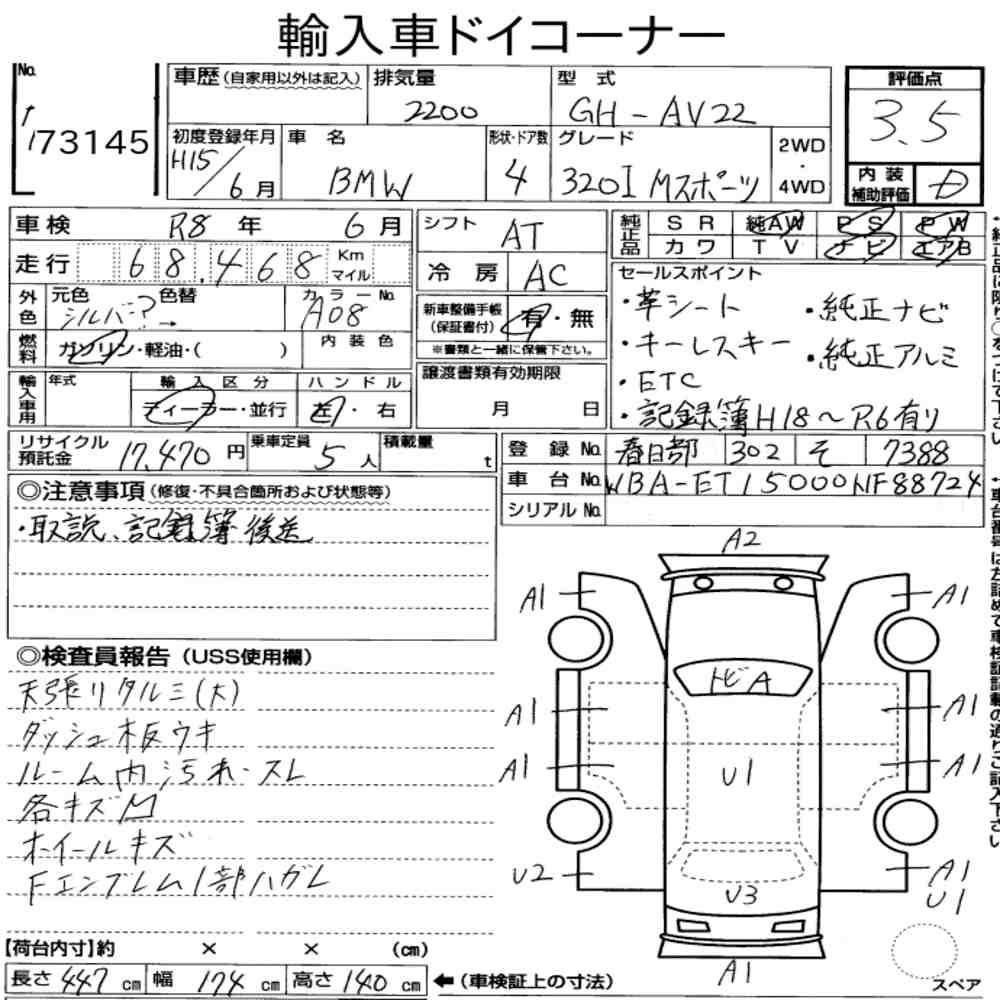 輸入車ドイコーナー
No.
73145
車歴(自家用以外は記入)
排気量
2200
型式
GH-AV22
評価点
3.5
初度登録年月
H15/6月
車名
BMW
形状・ドア数
4
グレード
320I Mスポーツ
2WD・4WD
内装補助評価
D
車検 R8年 6月
シフト
AT
純正品
SR 純AW PS PW
カワ TV ナビ エアB
走行 68,468 Km マイル
冷房
AC
セールスポイント
・革シート ・純正ナビ
・キーレスキー ・純正アルミ
・ETC
・記録簿H18〜R6有り
外色
元色 シルバー? → 色替
カラーNo.
A08
新車整備手帳(保証書付)
有・無
※書類と一緒に保管下さい。
燃料
ガソリン・軽油・( )
内装色
譲渡書類有効期限
月 日
輸入車用
年式
輸入区分
ディーラー・並行
ハンドル
左・右
リサイクル預託金
17,470円
乗車定員
5人
積載量
t
登録No. 春日部 302 そ 7388
車台No. WBA-ET15000NF88724
シリアルNo.
◎注意事項(修復・不具合箇所および状態等)
・取説、記録簿後送
◎検査員報告(USS使用欄)
天張りタルミ(大)
ダッシュ板ウキ
ルーム内汚れ・スレ
各キズ凹
ホイールキズ
Fエンブレム1部ハガレ
A2
A1
A1
トビA
A1
A1
A1
A1
U1
U2
A1
U1
U3
A1
スペア
【荷台内寸】約 × × (cm)
長さ 447cm 幅 174cm 高さ 140cm
←(車検証上の寸法)